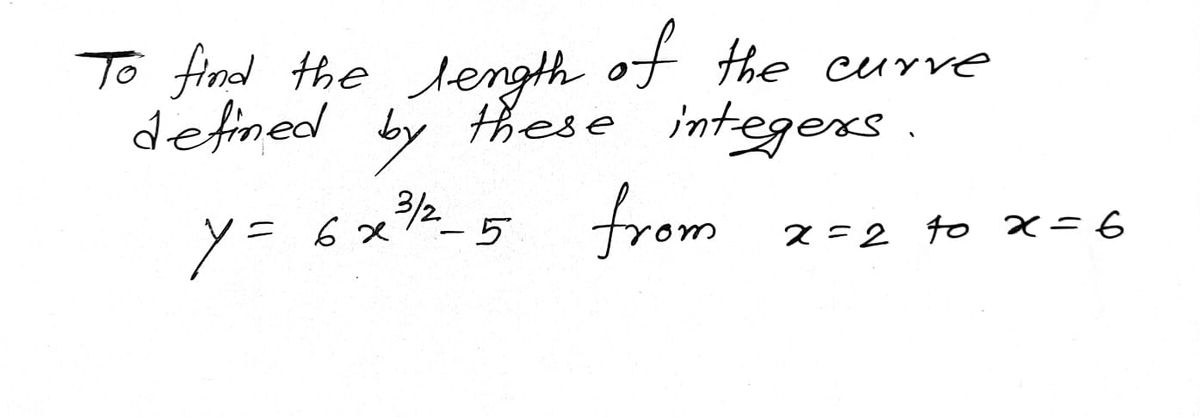 To find the length of the curve
defined by these integers.
y = 6x^3/2 - 5 from x = 2 to x = 6